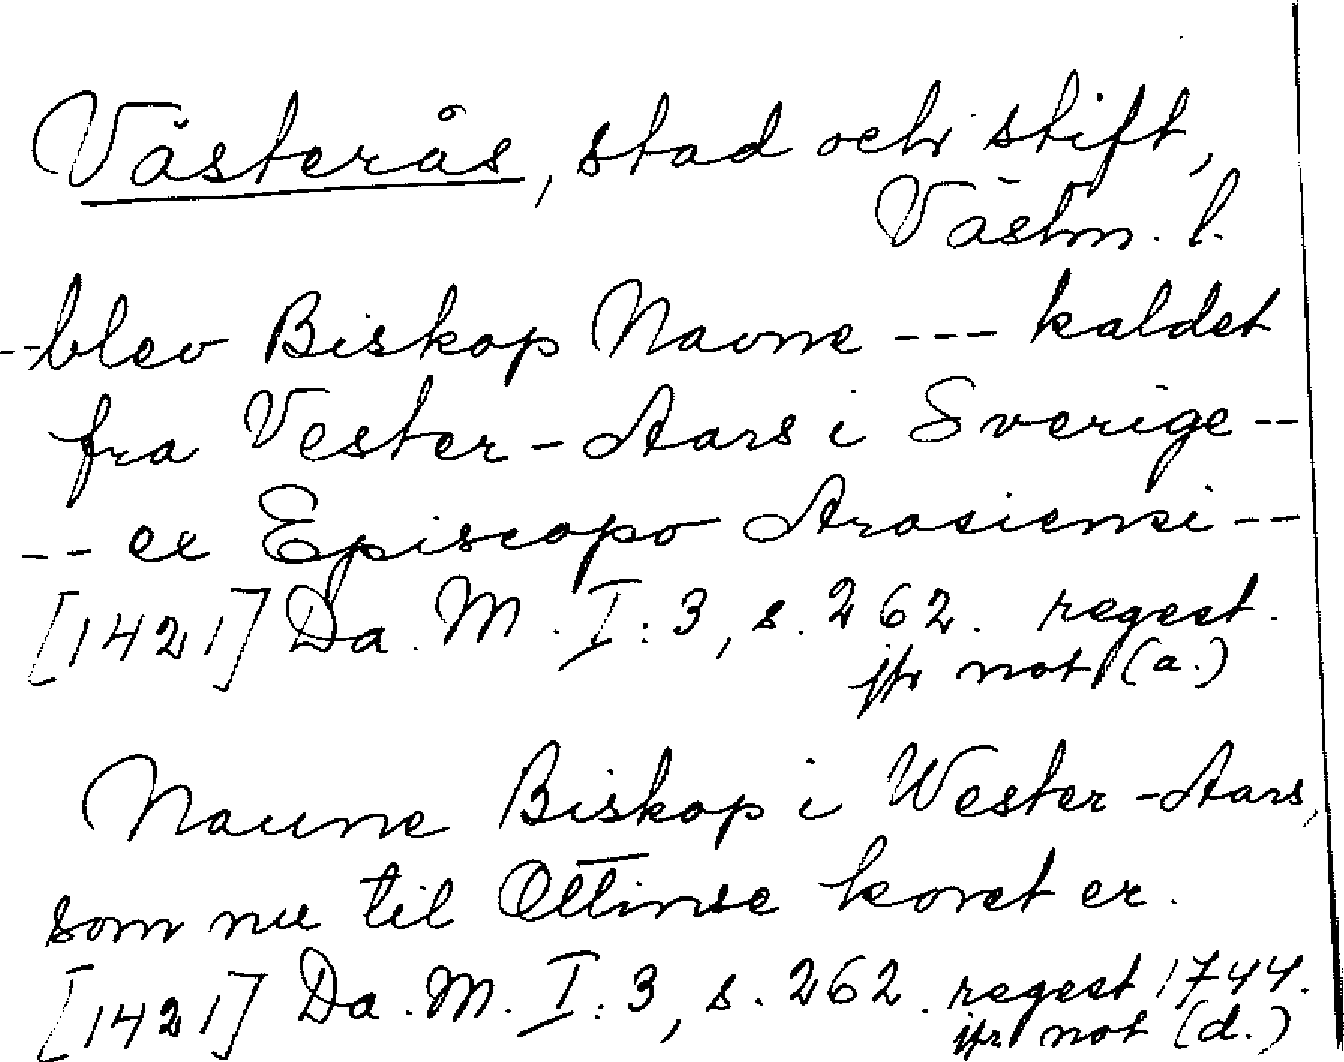 Västerås, stad och stift,
Västm. l.
--blev Biskop Navne --- kaldet
fra Vester-Aars i Sverige--
-- ex Episcopo Arosiensi--
[1421] Da. M. I:3, s. 262. regest.
jfr not (a.)
Naune Biskop i Wester-Aars,
som nu til Ottinse koret er.
[1421] Da. M. I:3, s. 262. regest 1744.
jfr not (d.)